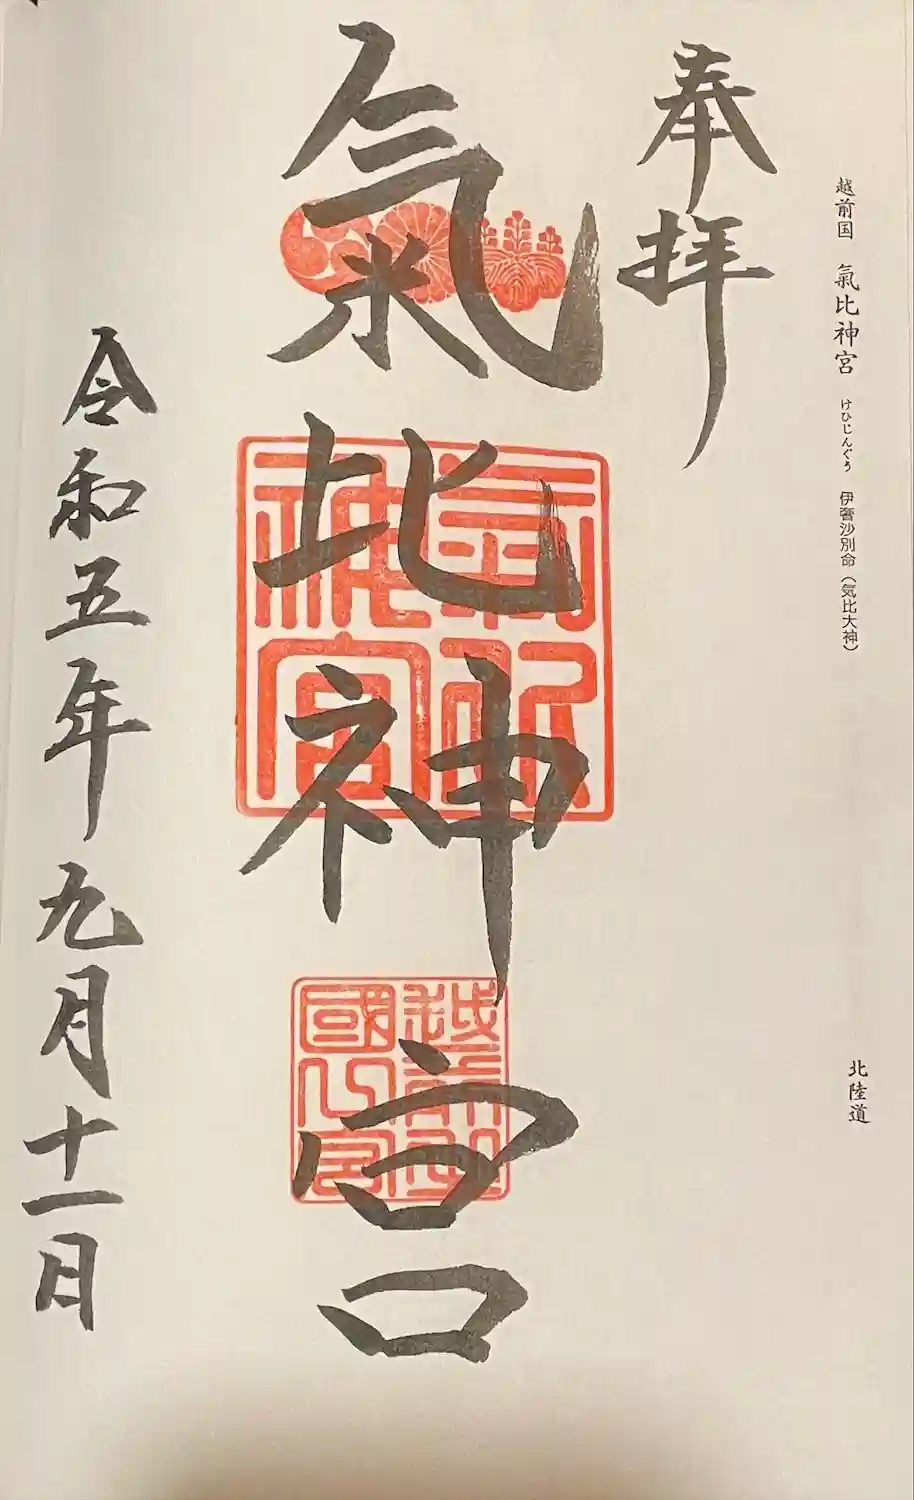 越前国 氣比神宮 けひじんぐう 伊奢沙別命（気比大神）
北陸道
奉拝
氣比神宮
氣比神宮
越前國一之宮
令和五年九月十一日